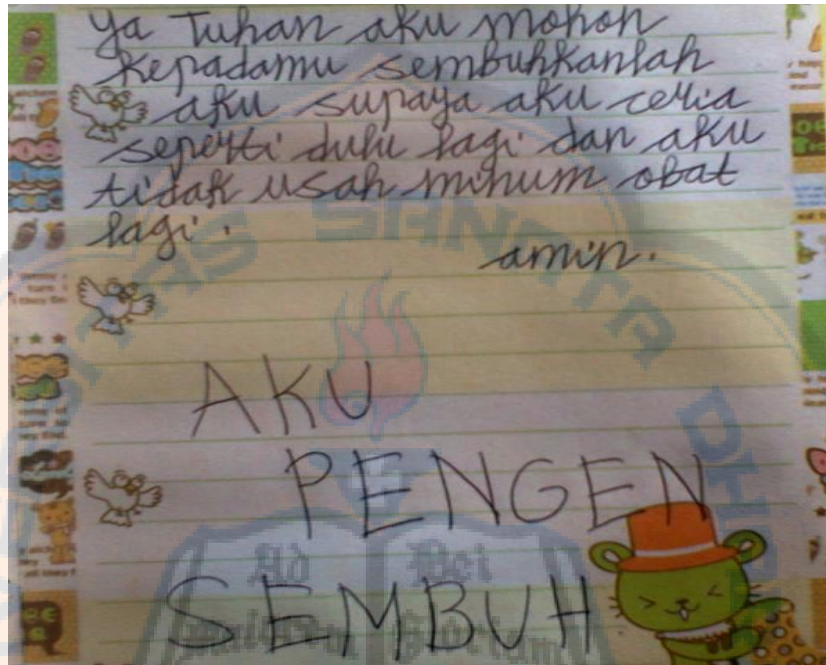 ya Tuhan aku mohon
kepadamu sembuhkanlah
aku supaya aku ceria
seperti dulu lagi dan aku
tidak usah minum obat
lagi.
amin.
AKU
PENGEN
SEMBUH
SANATA DHARMA
Ad Dei
Gloriam